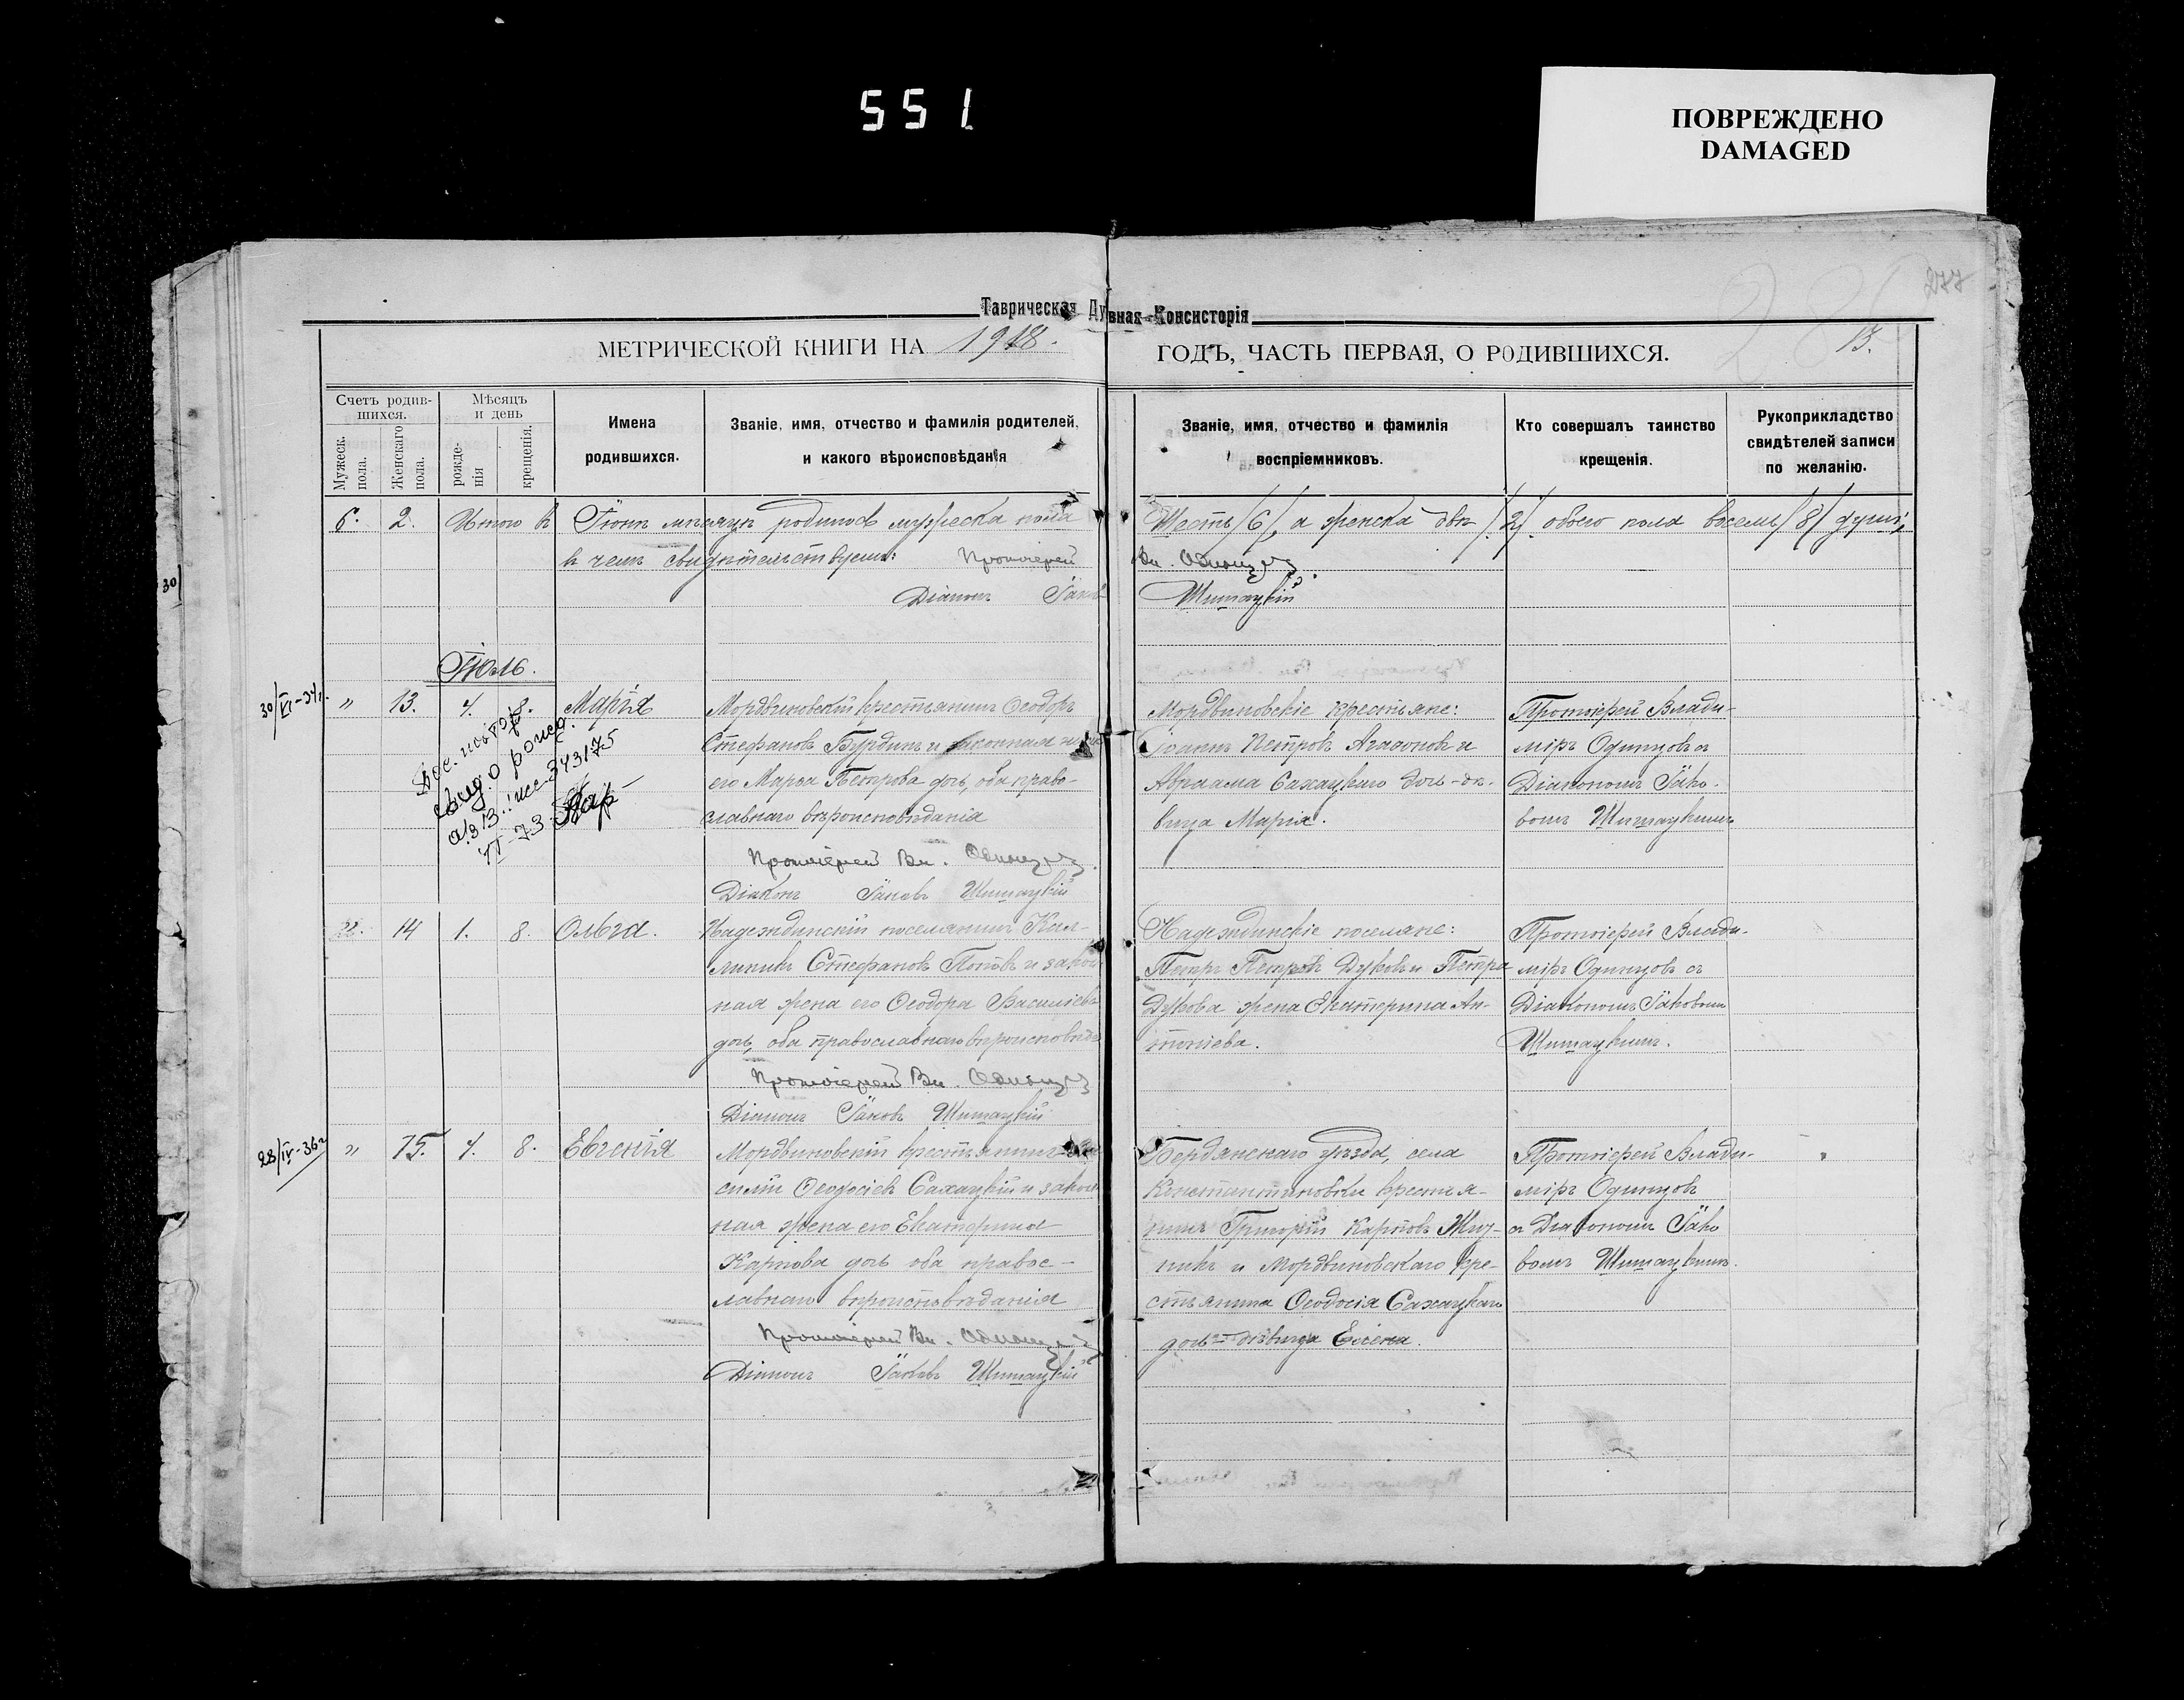 551
ПОВРЕЖДЕНО
DAMAGED
277
Таврическая Духовная Консисторія
МЕТРИЧЕСКОЙ КНИГИ НА 1918. ГОДЪ, ЧАСТЬ ПЕРВАЯ, О РОДИВШИХСЯ.
13.
Счетъ родив-
шихся.
Мужеск. пола.
Женскаго пола.
Мѣсяцъ
и день
рожде-
нія
крещенія.
Имена
родившихся.
Званіе, имя, отчество и фамилія родителей,
и какого вѣроисповѣданія
Званіе, имя, отчество и фамилія
воспріемниковъ.
Кто совершалъ таинство
крещенія.
Рукоприкладство
свидѣтелей записи
по желанію.
6. 2. Итого въ Іюнѣ мѣсяцѣ родилось мужеска пола Шесть /6/, а женска двѣ /2/. обоего пола восемь /8/ душъ,
в чемъ свидѣтельствуемъ: Протоіерей Вл. Одинцовъ
Діаконъ Іаковъ Шишацкій
30
Іюль.
30/VI-34г.
" 13. 4. Марѳа
свид. о рожд.
343175
VI-73
Мордвиновскій крестьянинъ Ѳеодоръ
Стефановъ Бурдинъ и законная жена
его Марѳа Петрова дочь, оба право-
славнаго вѣроисповѣданія
Протоіерей Вл. Одинцовъ
Діаконъ Іаковъ Шишацкій
Мордвиновскіе крестьяне:
Іоаннъ Петровъ Агаѳоновъ и
Авраама Сахацкаго дочь-дѣ-
вица Марія.
Протоіерей Влади-
міръ Одинцовъ съ
Діакономъ Іако-
вомъ Шишацкимъ
14 1. 8. Ольга.
Надеждинскій поселянинъ Кал-
линикъ Стефановъ Поповъ и закон-
ная жена его Ѳеодора Василіева
дочь, оба православнаго вѣроисповѣд.
Протоіерей Вл. Одинцовъ
Діаконъ Іаковъ Шишацкій
Надеждинскіе поселяне:
Петръ Петровъ Дуковъ и Петра
Дукова жена Екатерина Ан-
тоніева.
Протоіерей Влади-
міръ Одинцовъ съ
Діакономъ Іаковомъ
Шишацкимъ.
28/IV-36г
" 15. 4. 8. Евгенія
Мордвиновскій крестьянинъ Ва-
силій Ѳеодосіевъ Сахацкій и закон-
ная жена его Екатерина
Карпова дочь оба правос-
лавнаго вѣроисповѣданія
Протоіерей Вл. Одинцовъ
Діаконъ Іаковъ Шишацкій
Бердянскаго уѣзда, села
Константиновки крестья-
нинъ Григорій Карповъ
и Мордвиновскаго кре-
стьянина Ѳеодосія Сахацкаго
дочь дѣвица Елена.
Протоіерей Влади-
міръ Одинцовъ
съ Діакономъ Іако
вомъ Шишацкимъ.